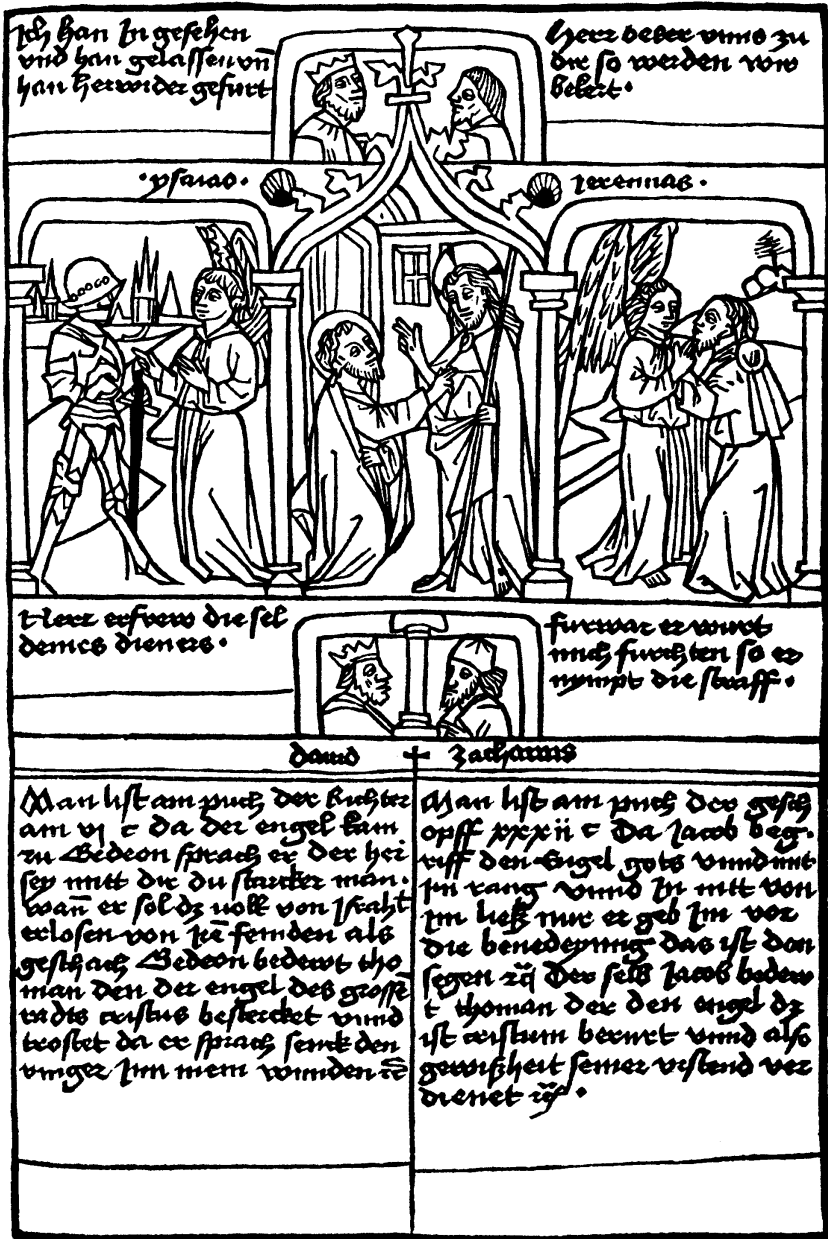 Ich han In gesehen
vnd han gelassen vn̄
han herwider gefurt
Herr beker vnns zu
dir so werden wir
bekert ·
· ysaias ·
Jeremias ·
Herr erfrew die sel
deines dieners ·
furwar er wirt
mich furchten so er
nympt die straff ·
dauid
zacharias
Man list am puch der Richter
am vi c da der engel kam
zu Gedeon sprach er der her
sey mitt dir du starcker man ·
wan̄ er sol dz volk von Israhel
erlosen von irē feinden als
geschach Gedeon bedewt tho
man den der engel des grossē
radts cristus bestercket vnnd
trostet da er sprach senck den
vinger Inn mein wunden
Man list am puch der gesch
opff xxxii c Da Jacob beg ·
riff den Engel gots vnnd mit
im rang vnnd In nitt von
im ließ nur er geb Im vor
die benedeyung das ist den
segen Der selb Jacob bedew
t thoman der den engel dz
ist cristum berurt vnnd also
gewißheit seiner vrstend ver
dienet